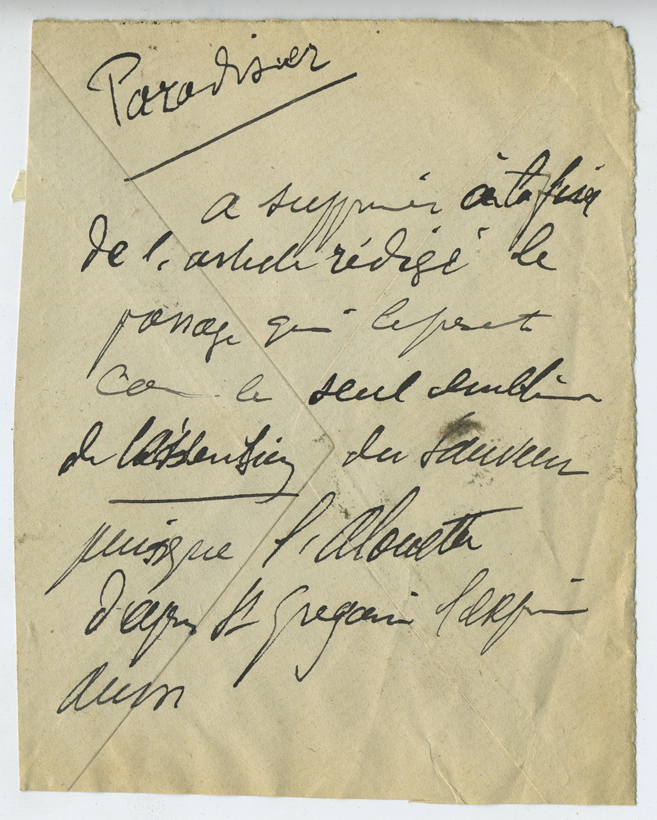 Paradisier
a supprimer à la fin
de l'article rédigé le
passage qui le
co le seul emblème
de l'Ascension du Sauveur
puisque l'Alouette
d'après St Gregoire l'exprime
aussi